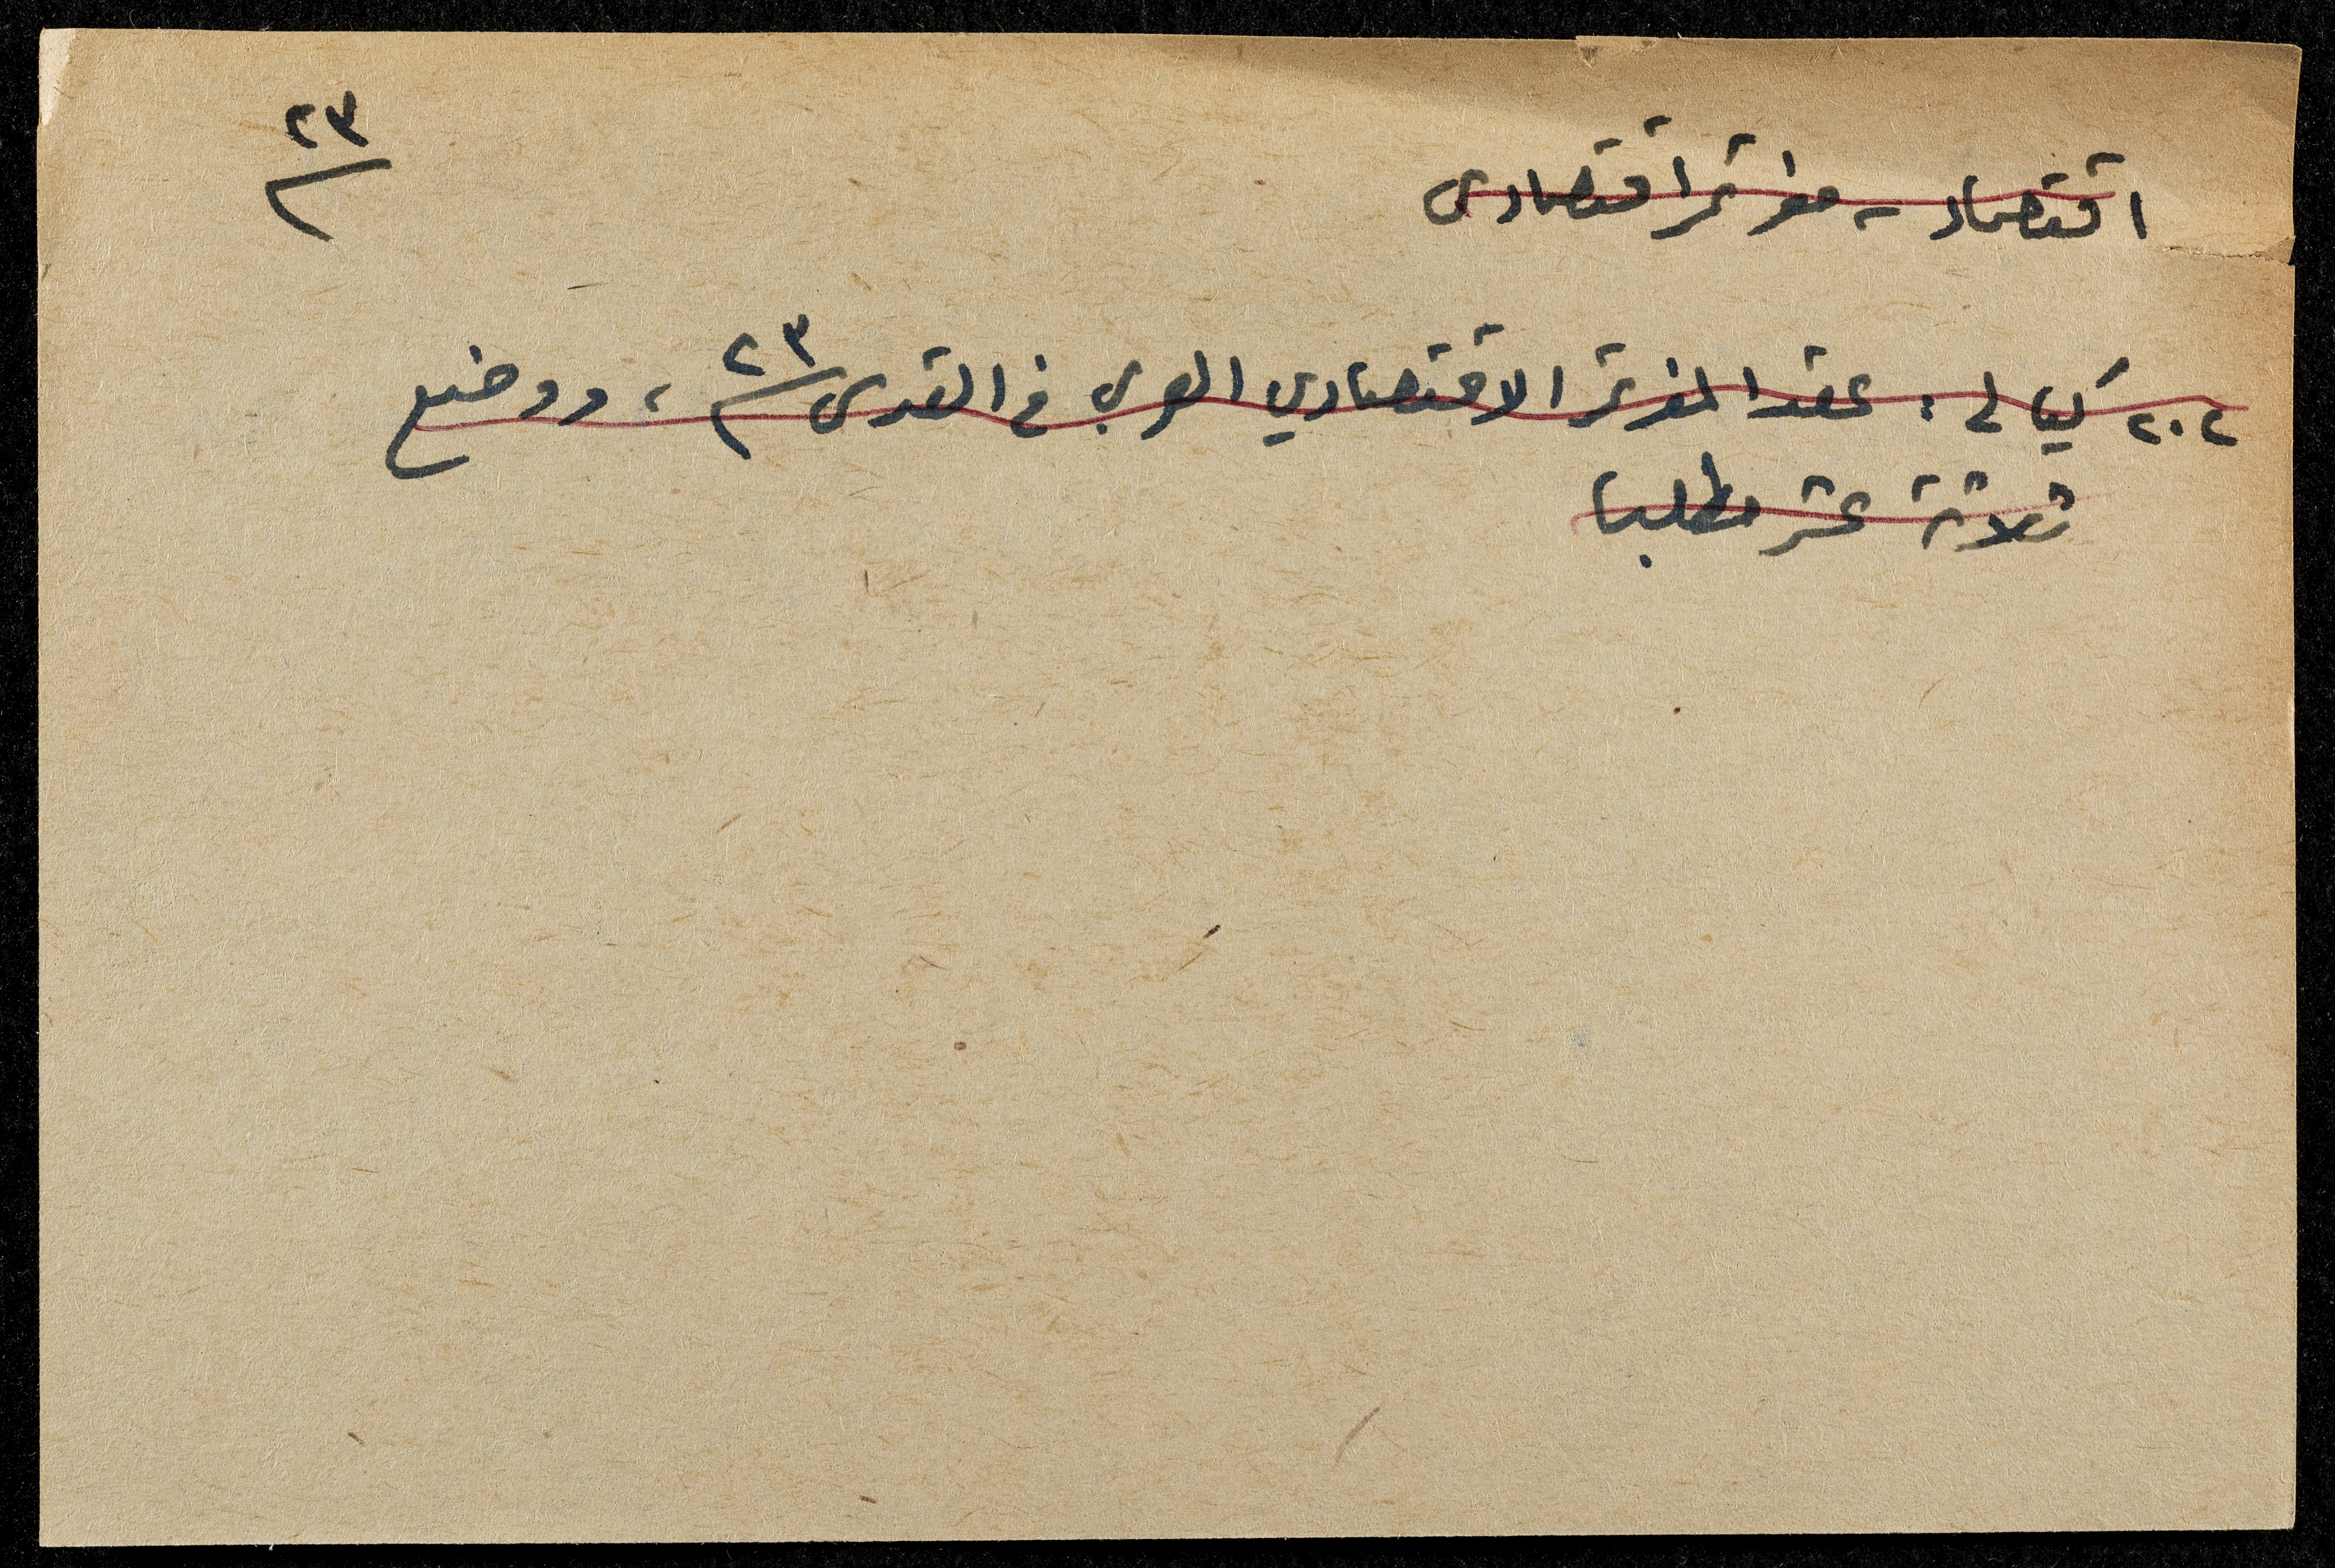 اقتصاد - مؤتمر اقتصادى
٢٣
٢٠٢ كيالي : عقد المؤتمر الاقتصادي العربي في القدس ٢٣ ، ووضع
ثلاثة عشر مطلبا